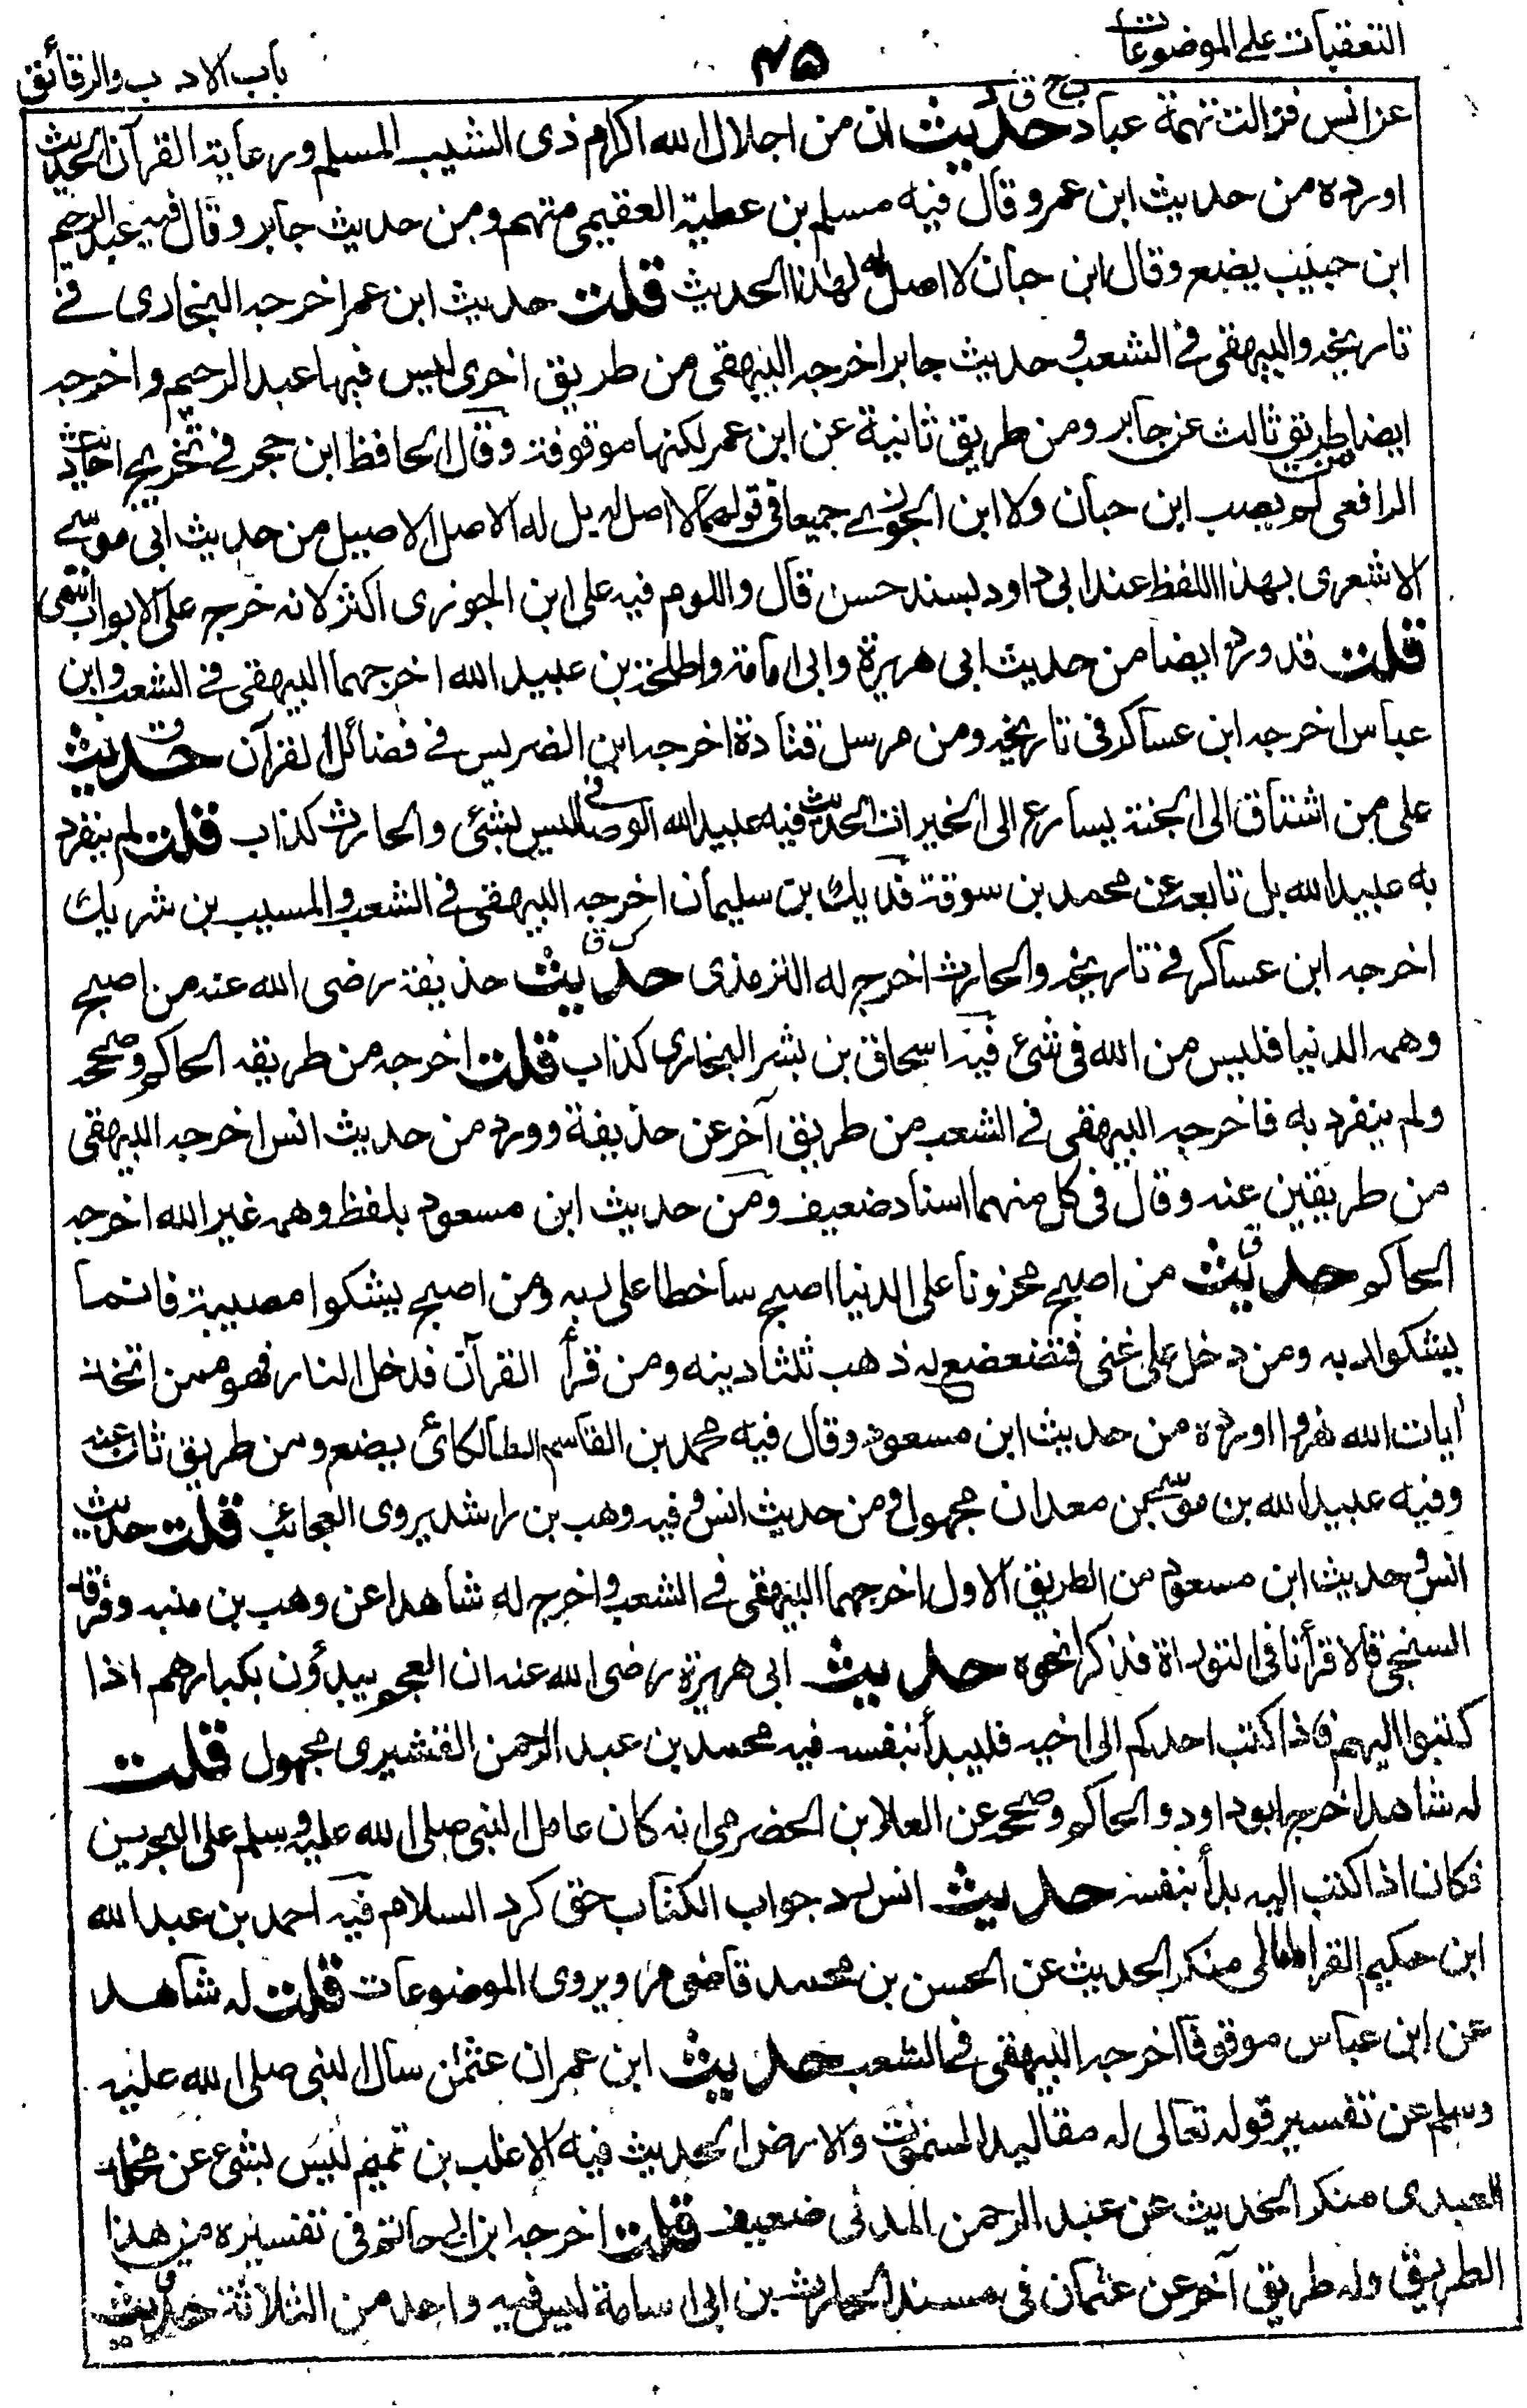 التعقبات على الموضوعات
٤٥
باب الادب والرقائق
عن انس فزالت تهمة عباد حديث ان من اجلال الله اكرام ذى الشيب المسلم ورعاية القرآن الحديث
اورده من حديث ابن عمر وقال فيه مسلم بن عطية العقيمى متهم ومن حديث جابر وقال فيه عبد الرحيم
ابن حبيب يضع وقال ابن حبان لا اصل له لهذا الحديث قلت حديث ابن عمر اخرجه البخارى فے
تاريخه والبيهقى فے الشعب و حديث جابر اخرجه البيهقى من طريق اخرى ليس فيها عبد الرحيم واخرجه
ايضا من طريق ثالث عن جابر ومن طريق ثانية عن ابن عمر لكنها موقوفة وقال الحافظ ابن حجر فے تخريج احاديث
الرافعى لم يصب ابن حبان ولا ابن الجوزے جميعا فى قولهما لا اصل له بل له الاصل الاصيل من حديث ابى موسے
الاشعرى بهذا اللفظ عند ابى داود بسند حسن قال واللوم فيه على ابن الجوزى اكثر لانه خرج على الابواب انتهى
قلت قد ورد ايضا من حديث ابى هريرة وابى امامة واطلحة بن عبيد الله اخرجهما البيهقى فے الشعب وابن
عباس اخرجه ابن عساكر فى تاريخه ومن مرسل قتادة اخرجه ابن الضريس فے فضائل القرآن حديث
على من اشتاق الى الجنة يسارع الى الخيرات الحديث فيه عبيد الله الوصافى ليس بشئى والحارث كذاب قلت لم ينفرد
به عبيد الله بل تابعه عن محمد بن سوقة فديك بن سليمان اخرجه البيهقى فے الشعب والمسيب بن شريك
اخرجه ابن عساكر فے تاريخه والحارث اخرج له الترمذى حديث حذيفة رضى الله عنه من اصبح
وهمه الدنيا فليس من الله فى شئ فيه اسحاق بن بشر البخارى كذاب قلت اخرجه من طريقه الحاكم وصححه
ولم ينفرد به فاخرجه البيهقى فے الشعب من طريق آخر عن حذيفة وورد من حديث انس اخرجه البيهقى
من طريقين عنه وقال فى كل منهما اسناد ضعيف ومن حديث ابن مسعود بلفظ وهمه غير الله اخرجه
الحاكم حديث من اصبح محزونا على الدنيا اصبح ساخطا على ربه ومن اصبح يشكوا مصيبة فانما
يشكوا ربه ومن دخل على غنى فتضعضع له ذهب ثلثا دينه ومن قرأ القرآن فدخل النار فهو ممن اتخذ
ايات الله هزوا اورده من حديث ابن مسعود وقال فيه محمد بن القاسم الطالكائى يضع ومن طريق ثان عنه
وفيه عبيد الله بن موسے بن معدان مجهول ومن حديث انس وفيه وهب بن راشد يروى العجائب قلت حديث
انس وحديث ابن مسعود من الطريق الاول اخرجهما البيهقى فے الشعب واخرج له شاهدا عن وهب بن منبه وفرقد
السنجى قالا قرأنا فى التوراة فذكرا نحوه حديث ابى هريرة رضى الله عنه ان العجم يبدؤن بكبارهم اذا
كتبوا اليهم فاذا كتب احدكم الى اخيه فليبدأ بنفسه فيه محمد بن عبد الرحمن القشيرى مجهول قلت
له شاهد اخرجه ابوداود والحاكم وصححه عن العلا بن الحضرمى انه كان عامل النبى صلى الله عليه وسلم على البحرين
فكان اذا كتب اليه بدأ بنفسه حديث انس رد جواب الكتاب حق كرد السلام فيه احمد بن عبد الله
ابن حكيم منكر الحديث عن الحسن بن محمد قاضى مرو يروى الموضوعات قلت له شاهد
عن ابن عباس موقوفا اخرجه البيهقى فے الشعب حديث ابن عمر ان عثمٰن سال النبى صلى الله عليه
وسلم عن تفسير قوله تعالى له مقاليد السمٰوٰت والارض الحديث فيه الاغلب بن تميم ليس بشئ عن مخلد
العبدى منكر الحديث عن عبد الرحمن المدنى ضعيف قلت اخرجه ابن ابى حاتم فى تفسيره من هذا
الطريق وله طريق آخر عن عثمان فى مسند الحارث بن ابى اسامة ليس فيه واحد من الثلاثة حديث